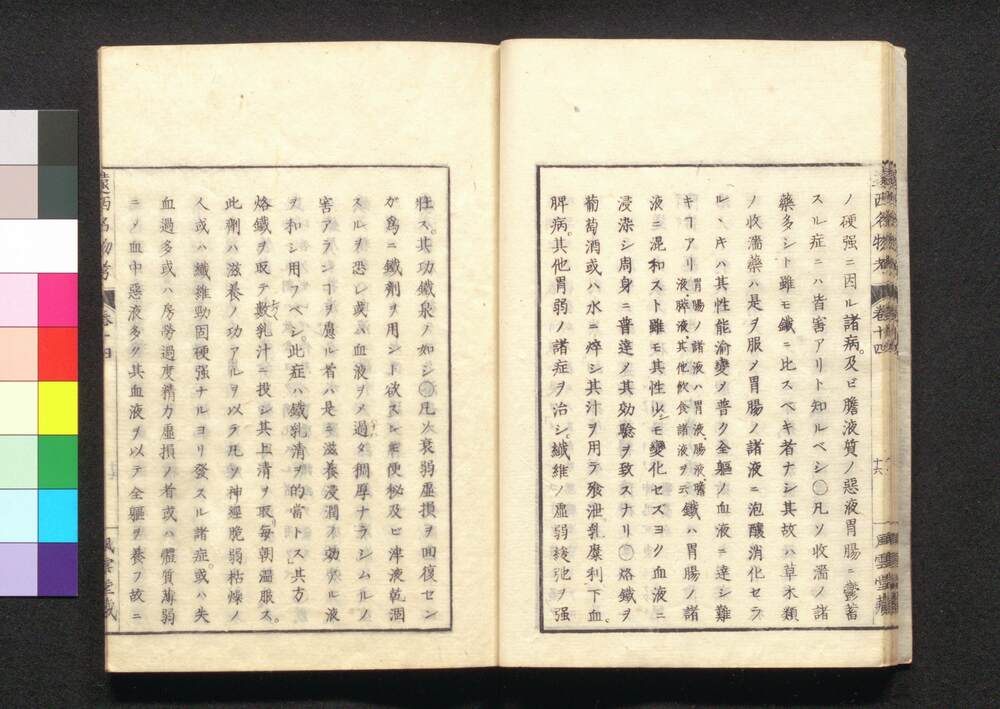 ノ硬强ニ因ル諸病。及ビ膽液質ノ惡液胃腸ニ鬱蓄
スル症ニハ皆害アリト知ルベシ○凡ソ收濇ノ諸
藥多シト雖モ鐵ニ比スベキ者ナシ其故ハ草木類
ノ收濇藥ハ是ヲ服ノ胃腸ノ諸液ニ泡釀消化セラ
ル、キハ其性能渝變ノ普ク全軀ノ血液ニ達シ難
キヿアリ
胃腸ノ諸液ハ胃液、腸液、膽
液、膵液、其他飮食諸液ヲ云
鐵ハ胃腸ノ諸
液ニ混和スト雖モ其性少シモ變化セズヨク血液ニ
浸染シ周身ニ普達ノ其効驗ヲ致スナリ○烙鐵ヲ
葡萄酒或ハ水ニ焠シ其汁ヲ用テ飱泄乳糜利下血。
脾病。其他胃弱ノ諸症ヲ治シ。纖維ノ虛弱緩弛ヲ强
壯ス。其功鐵泉ノ如シ○凡ソ衰弱虛損ヲ囘復セン
ガ爲ニ鐵劑ヲ用ント欲スレ𪜈便祕及ビ津液乾涸
スルヲ恐レ或ハ血液ヲメ過タ稠厚ナラシムルノ
害アランヿヲ慮ル者ハ是ニ滋養浸潤ノ効アル液
ヲ和シ用フベシ。此症ハ鐵乳淸ヲ的當トス」其方
烙鐵ヲ取テ數乳汁ニ投シ其上淸ヲ取毎朝溫服ス。
此劑ハ滋養ノ功アルヲ以テ凡ソ神經脆弱枯燥ノ
人或ハ纖維勁固硬强ナルヨリ發スル諸症。或ハ失
血過多或ハ房勞過度精力虛損ノ者或ハ體質薄弱
ニノ血中惡液多ク其血液ヲ以テ全軀ヲ養フ故ニ
遠西名物考
卷十四
十六
風雲堂藏